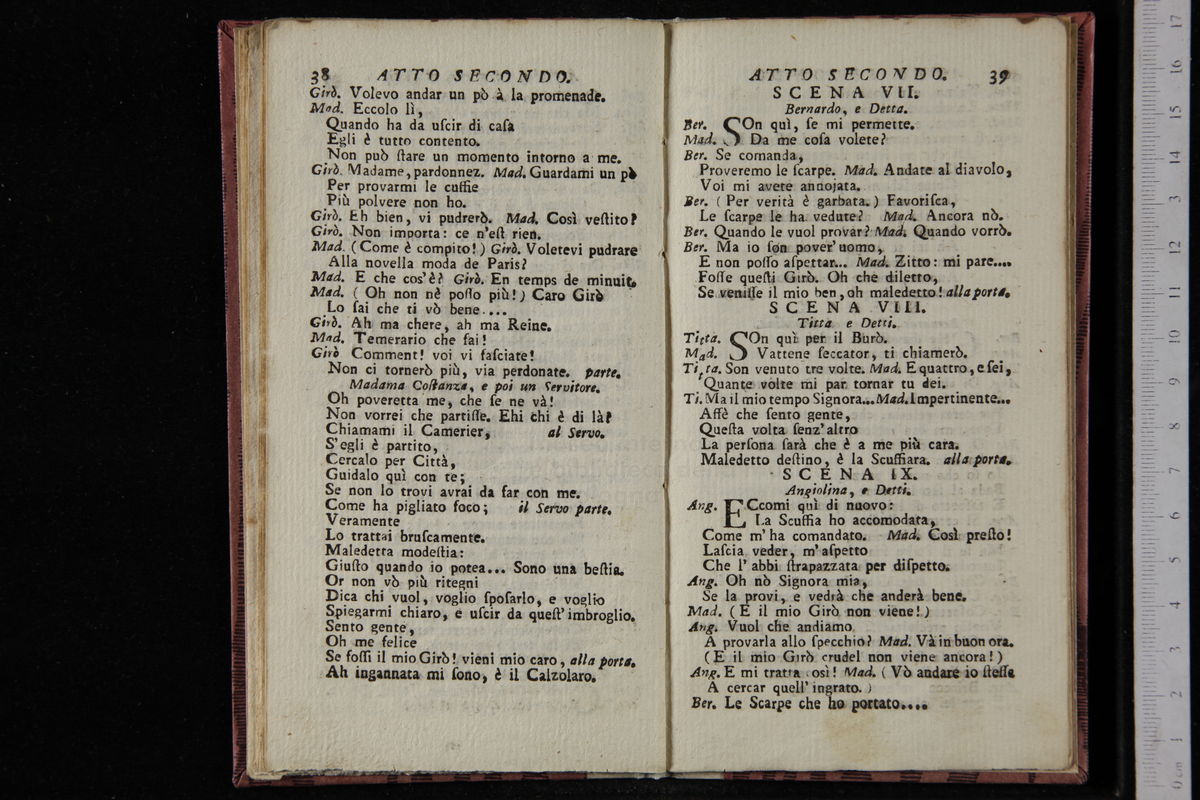 38 ATTO SECONDO.
Girò. Volevo andar un pò à la promenade.
Mad. Eccolo lì,
Quando ha da uſcir di caſa
Egli è tutto contento.
Non può ſtare un momento intorno a me.
Girò. Madame, pardonnez. Mad. Guardami un pò
Per provarmi le cuffie
Più polvere non ho.
Girò. Eh bien, vi pudrerò. Mad. Così veſtito?
Girò. Non importa: ce n'eſt rien.
Mad. (Come è compito!) Girò. Voletevi pudrare
Alla novella moda de Paris?
Mad. E che cos'è? Girò. En temps de minuit.
Mad. (Oh non nè poſſo più!) Caro Girò
Lo ſai che ti vò bene....
Girò. Ah ma chere, ah ma Reine.
Mad. Temerario che fai!
Girò Comment! voi vi faſciate!
Non ci tornerò più, via perdonate. parte.
Madama Coſtanza, e poi un Servitore.
Oh poveretta me, che ſe ne và!
Non vorrei che partiſſe. Ehi chi è di là?
Chiamami il Camerier, al Servo.
S'egli è partito,
Cercalo per Città,
Guidalo quì con te;
Se non lo trovi avrai da far con me.
Come ha pigliato foco; il Servo parte.
Veramente
Lo trattai bruſcamente.
Maledetta modeſtia:
Giuſto quando io potea... Sono una beſtia.
Or non vò più ritegni
Dica chi vuol, voglio ſpoſarlo, e voglio
Spiegarmi chiaro, e uſcir da queſt' imbroglio.
Sento gente,
Oh me felice
Se foſſi il mio Girò! vieni mio caro, alla porta.
Ah ingannata mi ſono, è il Calzolaro.
ATTO SECONDO. 39
SCENA VII.
Bernardo, e Detta.
Ber. SOn quì, ſe mi permette.
Mad. Da me coſa volete?
Ber. Se comanda,
Proveremo le ſcarpe. Mad. Andate al diavolo,
Voi mi avete annojata.
Ber. (Per verità è garbata.) Favoriſca,
Le ſcarpe le ha vedute? Mad. Ancora nò.
Ber. Quando le vuol provar? Mad. Quando vorrò.
Ber. Ma io ſon pover'uomo,
E non poſſo aſpettar... Mad. Zitto: mi pare....
Foſſe queſti Girò. Oh che diletto,
Se veniſſe il mio ben, oh maledetto! alla porta.
SCENA VIII.
Titta e Detti.
Titta. SOn quì per il Burò.
Mad. Vattene ſeccator, ti chiamerò.
Titta. Son venuto tre volte. Mad. E quattro, e ſei,
Quante volte mi par tornar tu dei.
Ti. Ma il mio tempo Signora... Mad. Impertinente...
Affè che ſento gente,
Queſta volta ſenz' altro
La perſona ſarà che è a me più cara.
Maledetto deſtino, è la Scuffiara. alla porta.
SCENA IX.
Angiolina, e Detti.
Ang. ECcomi quì di nuovo:
La Scuffia ho accomodata,
Come m' ha comandato. Mad. Così preſto!
Laſcia veder, m'aſpetto
Che l' abbi ſtrapazzata per diſpetto.
Ang. Oh nò Signora mia,
Se la provi, e vedrà che anderà bene.
Mad. (E il mio Girò non viene!)
Ang. Vuol che andiamo
A provarla allo ſpecchio? Mad. Và in buon ora.
(E il mio Girò crudel non viene ancora!)
Ang. E mi tratta così! Mad. (Vò andare io ſteſſa
A cercar quell' ingrato.)
Ber. Le Scarpe che ho portato....